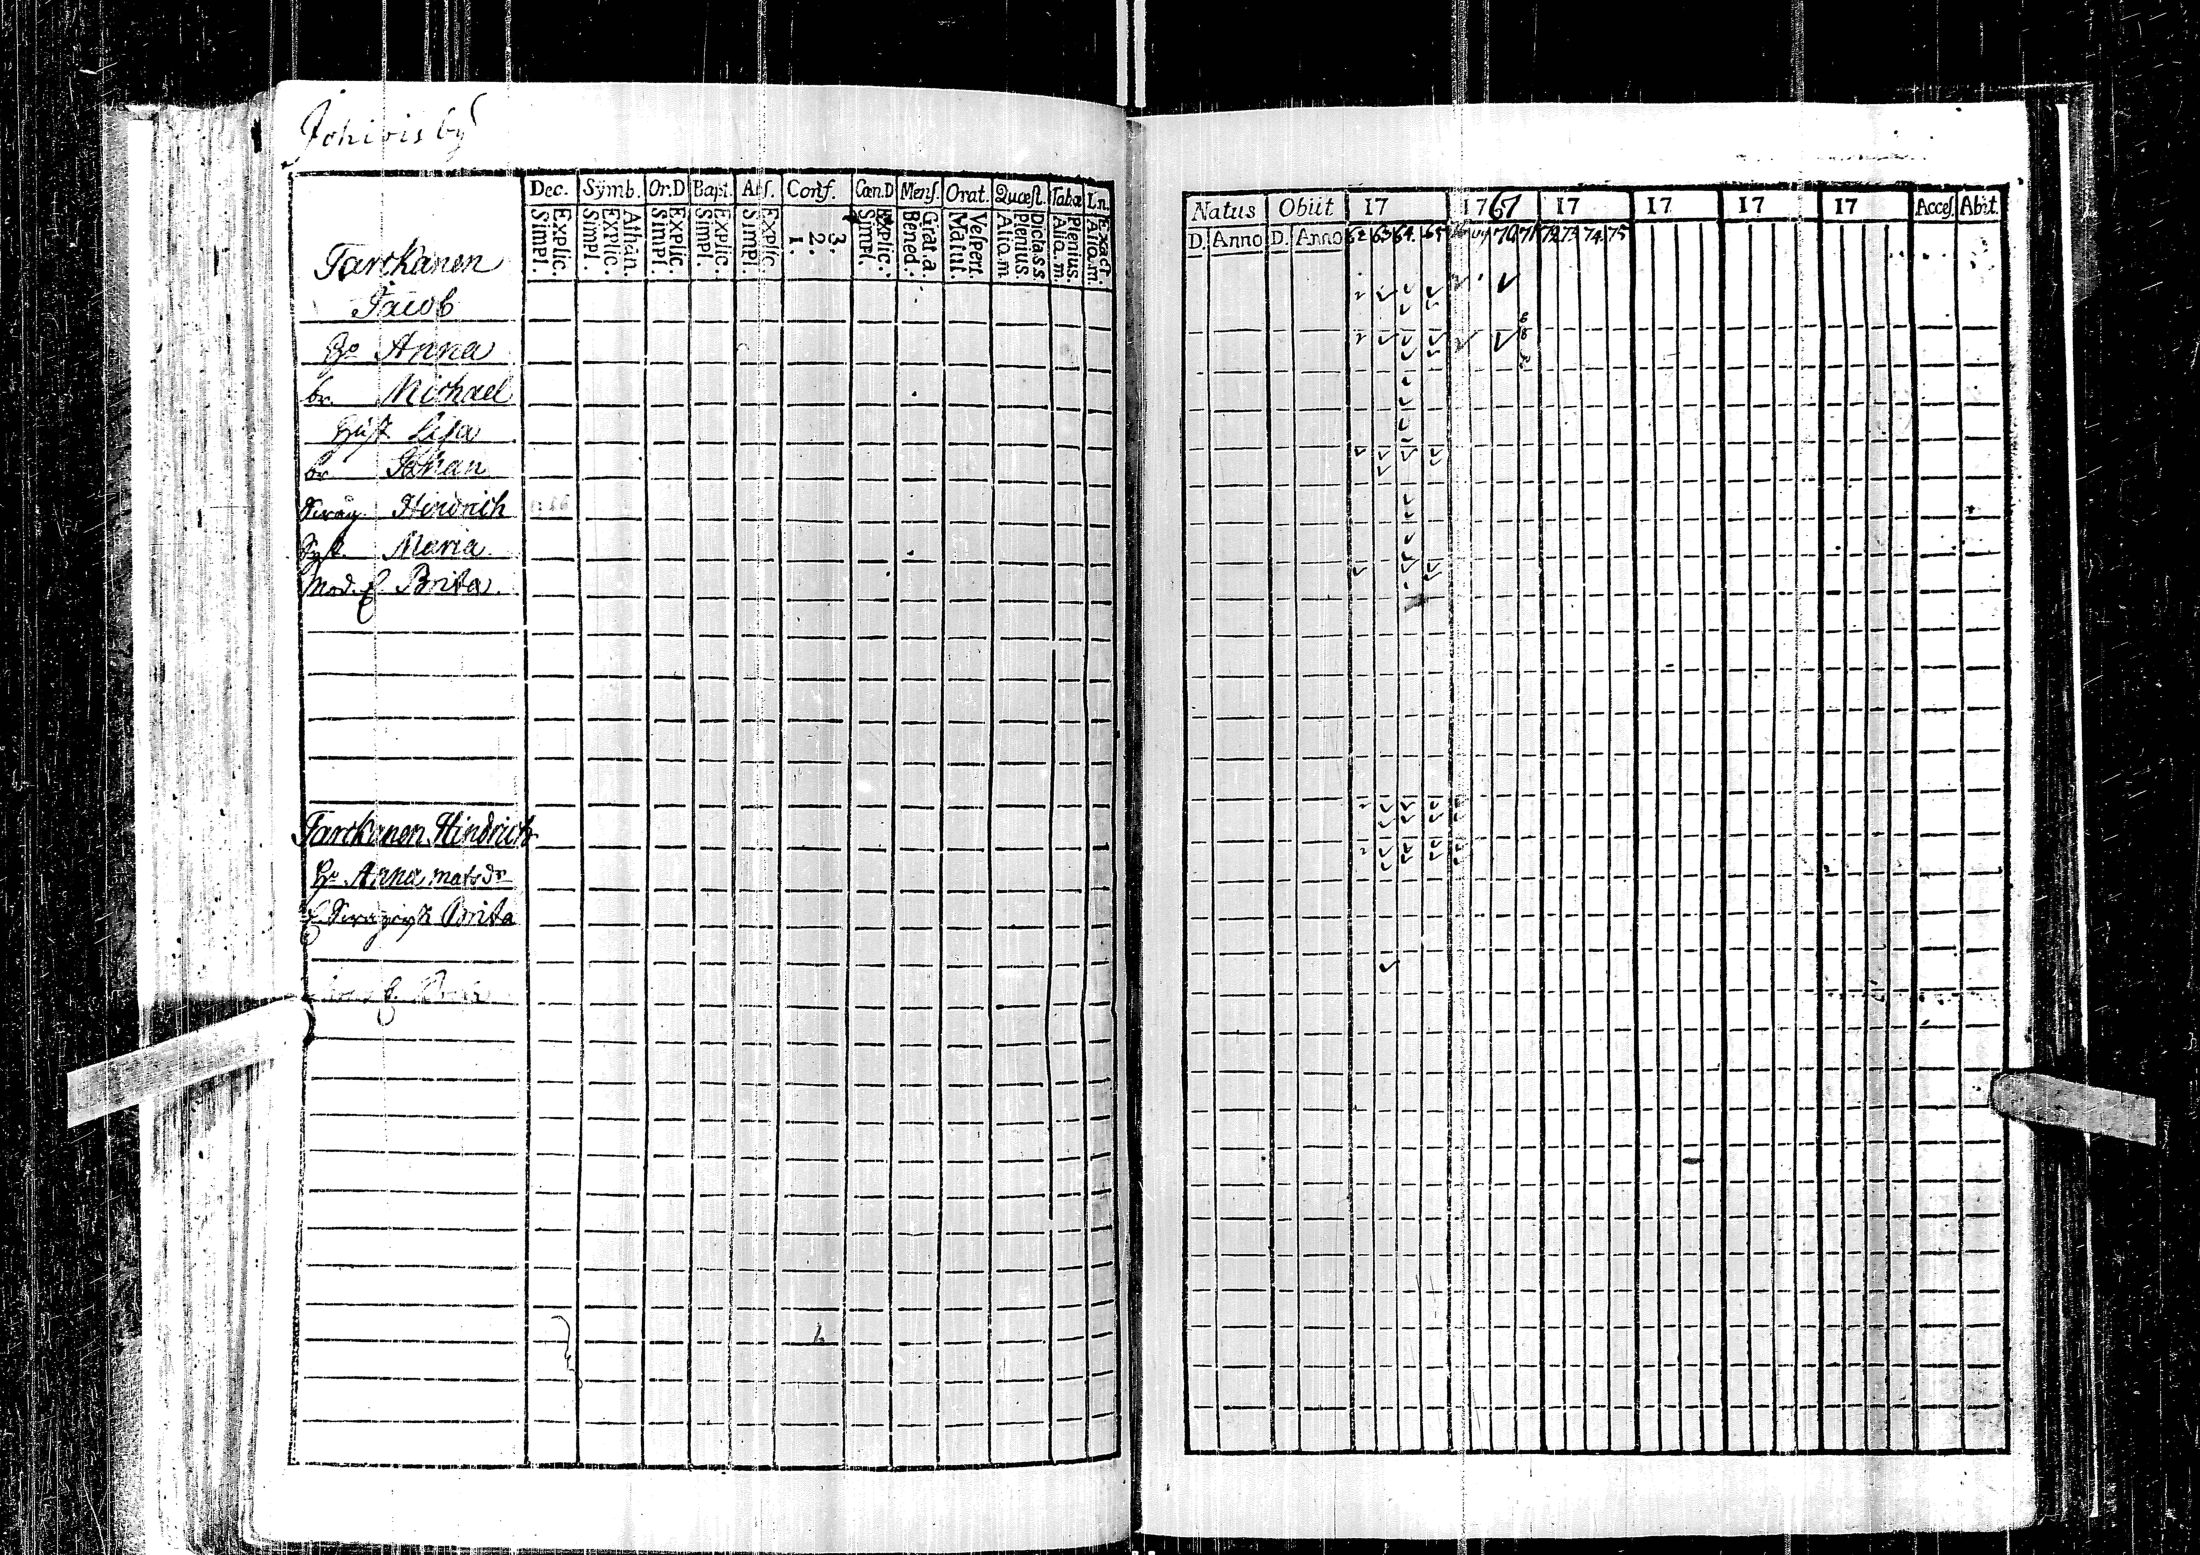 Johivis by
Dec. Symb. Or.D Bapt. Abs. Conf. Cœn.D Mens. Orat. Quæst. Tabæ
Explic. Simpl. Athan. Explic. Simpl. Explic. Simpl. Explic. Simpl. Explic. Simpl. 3. 2. 1. Explic. Simpl. Grat. a. Bened. Vespert. Matut. Plenius. Alio. m. Plenius. Alio. m. Exact. Alio. m.
Tarckanen
Jacob
Hu Anna
br. Michael
Hust Lisa
br. Johan
Hindrich
Syst. Maria
Mod. E. Brita
Tarckanen Hindrich
Hu Anna mats dr
Brita
Natus Obiit 17 1767 17 17 17 17 Acces. Abit.
D. Anno D. Anno 62 63 64 65 70 71 72 73 74 75